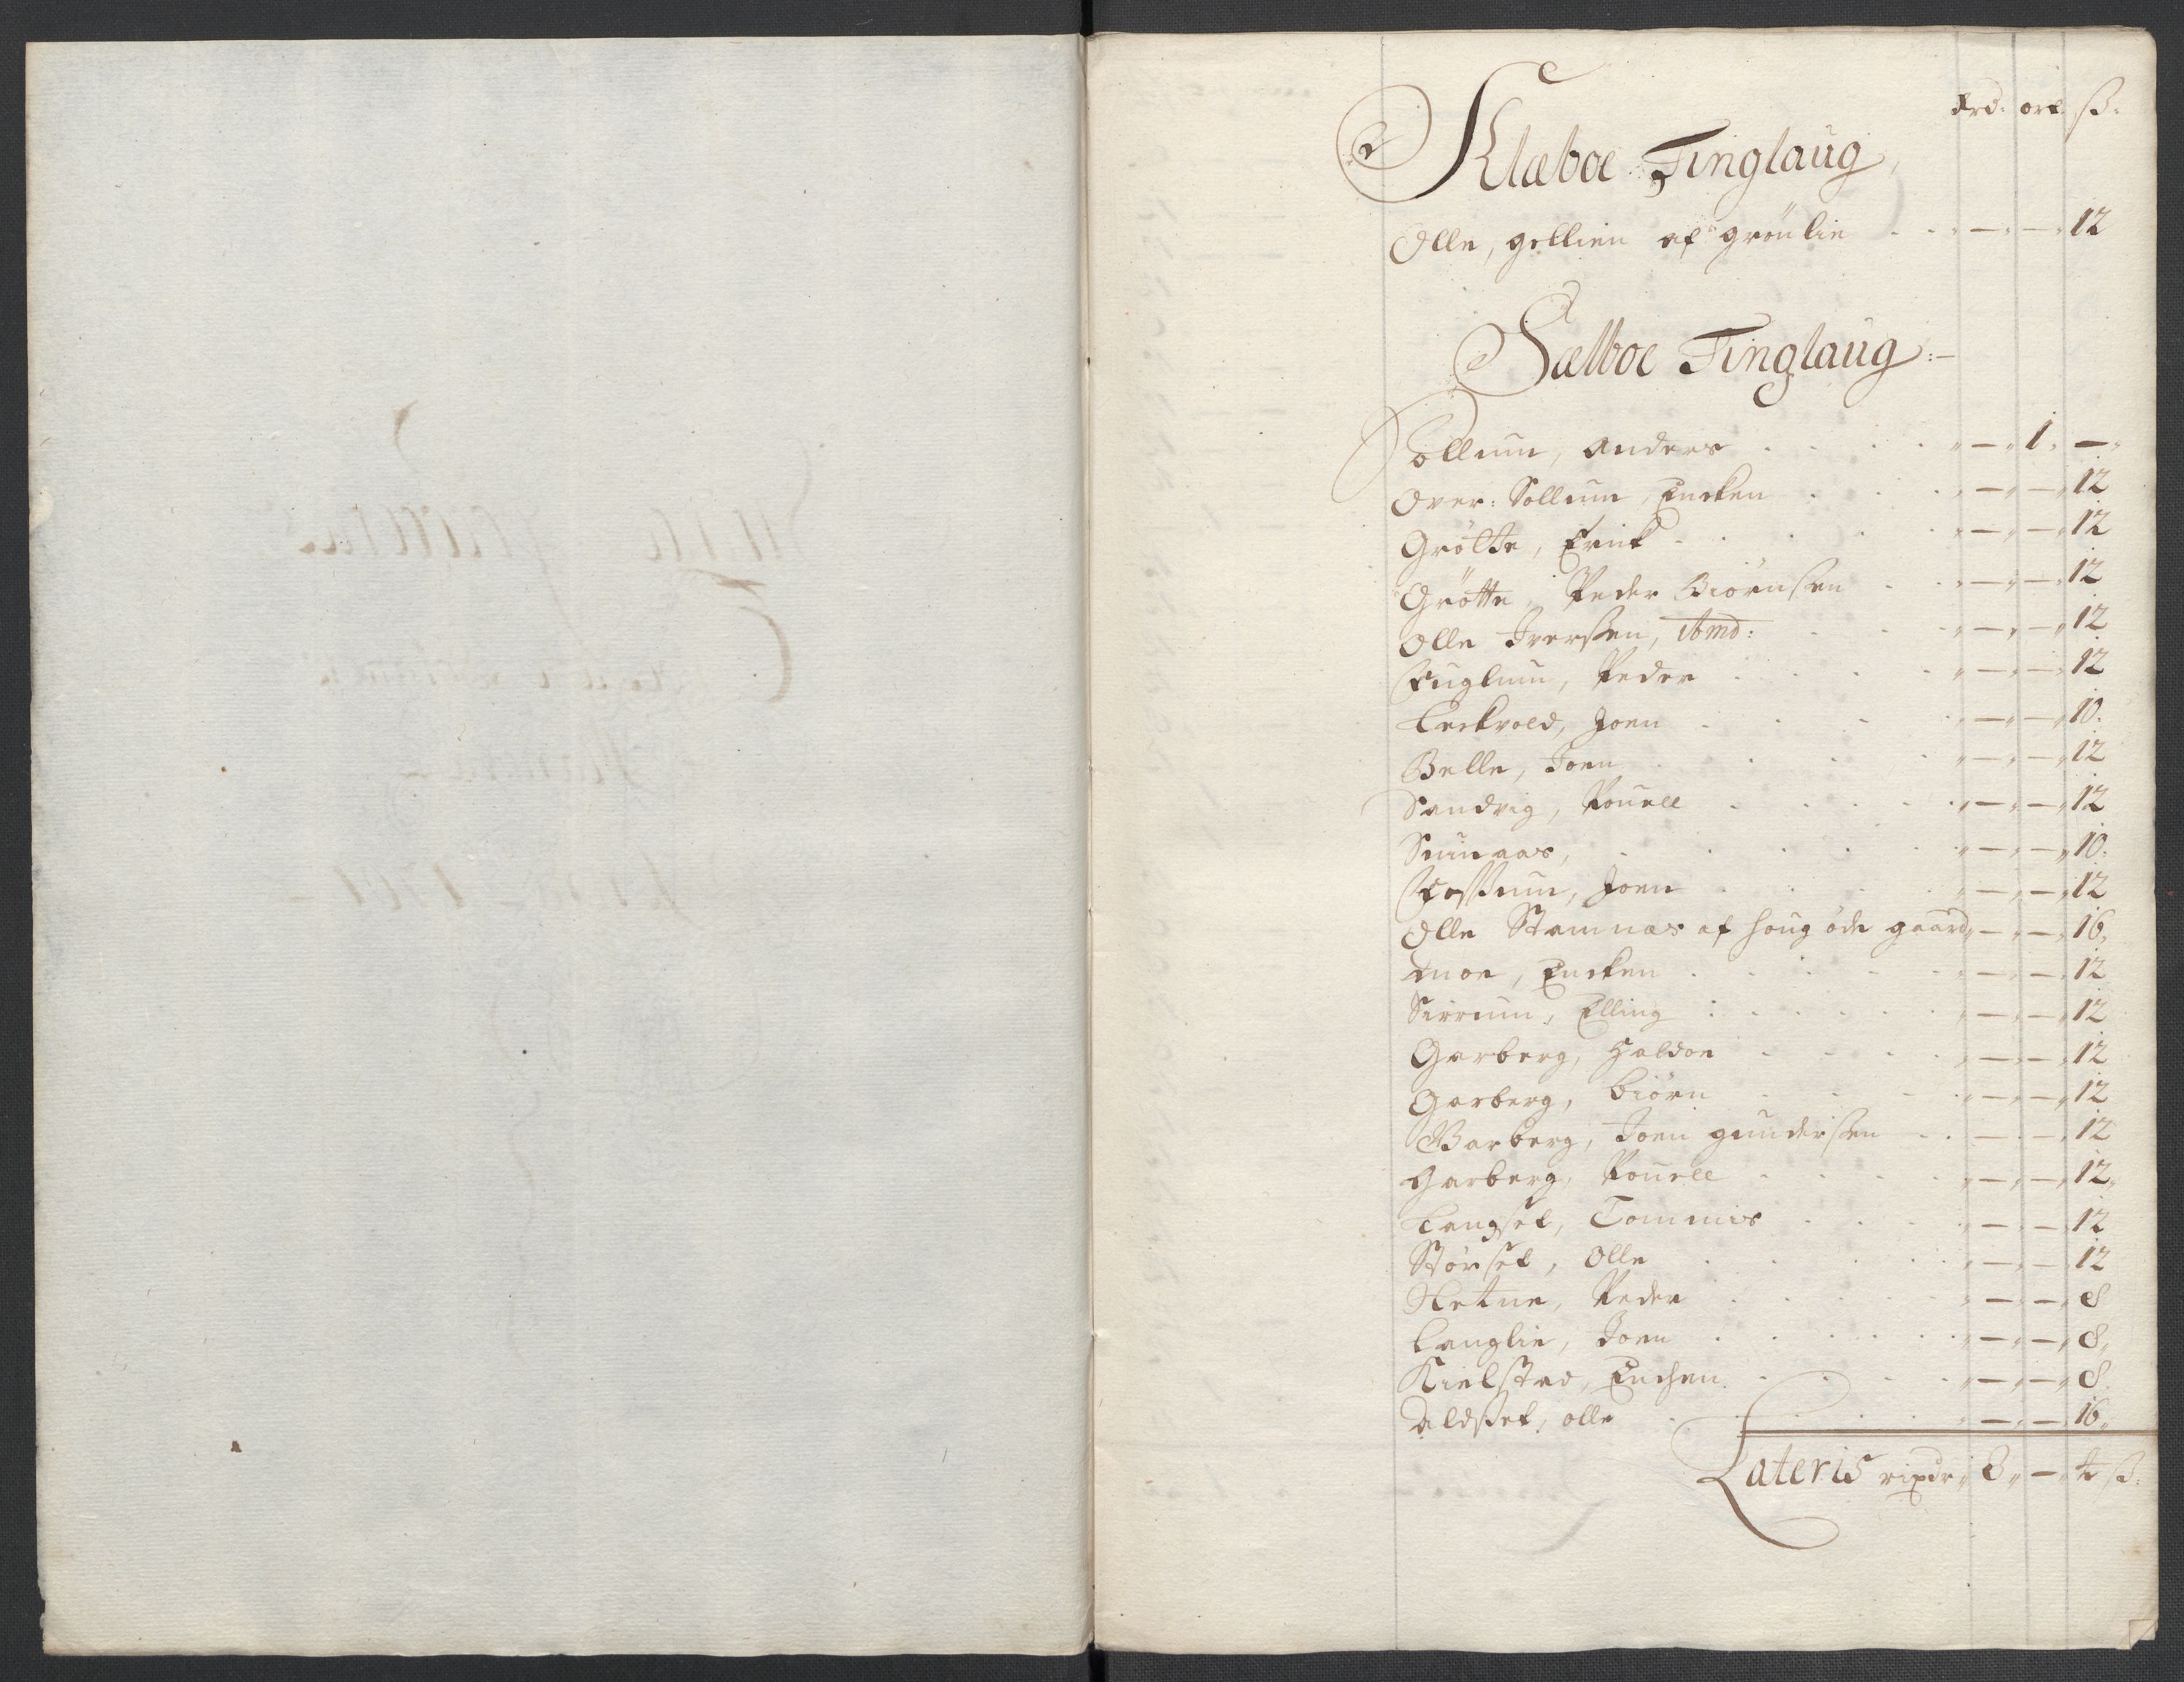 drd: ort. ß:
Klæboe Tinglaug
Olle, gellien af grönlie - - 12
Sælboe Tinglaug :-
Sollum, Anders - 1. -
Over: Sollum, Encken - - 12
Grötte, Erick - - 12
Grötte, Peder Biörnsen - - 12
Olle Iversen, ibmd: - - 12
Fuglum, Peder - - 12
Leckvold, Joen - - 10:
Belle, Joen - - 12
Sandvig, Pouell - - 12
Sninaas, - - 10:
Fossum, Joen - - 12
Olle Stamnæs af houg öde gaard, - - 16,
moe, Encken - - 12
Sirrum, Elling - - 12
Garberg, Haldor - - 12
Garberg, Biörn - - 12
Garberg, Joen gundersen - - 12
Garberg, Pouell - - 12,
Langset, Tommis - - 12
Störset, Olle - - 12
Sletne, Peder - - 8
Langlie, Joen - - 8,
Kielstad, Enchen - - 8
aldset, olle - - 16,
Lateris rixdr 3 - 4 ß: